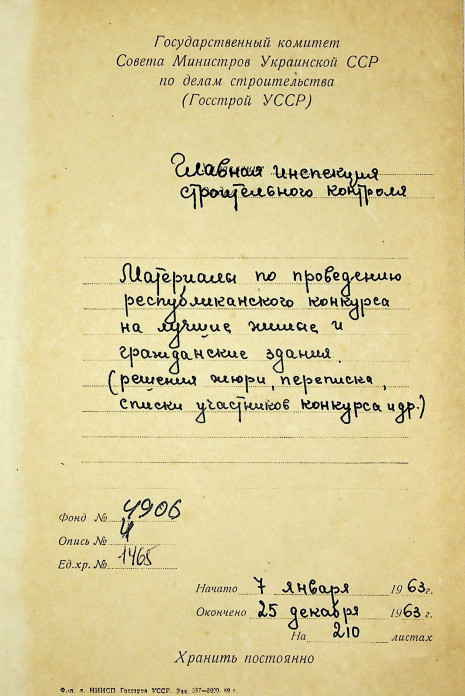 Государственный комитет
Совета Министров Украинской ССР
по делам строительства
(Госстрой УССР)
Главная инспекция
строительного контроля
Материалы по проведению
республиканского конкурса
на лучшие жилые и
гражданские здания.
(решения жюри, переписка,
списки участников конкурса и др.)
Фонд № 4906
Опись № 4
Ед.хр. № 1465
Начато 7 января 1963 г.
Окончено 25 декабря 1963 г.
На 210 листах
Хранить постоянно
НИИСП Госстроя УССР. Зак.